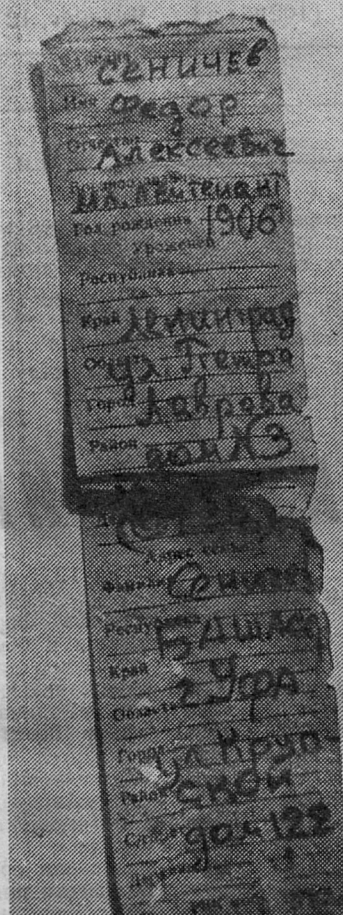 Фамилия Сеничев
Имя Федор
Отчество Алексеевич
Мл. лейтенант
Год рождения 1906
Уроженец
Республика
Край Ленинград
ул Петра
Город Лаврова
Район дом №3
Адрес семьи
Фамилия
Республика БАШАССР
Край г. УФА
Область
Город ул Круп-
Район ской
дом 122